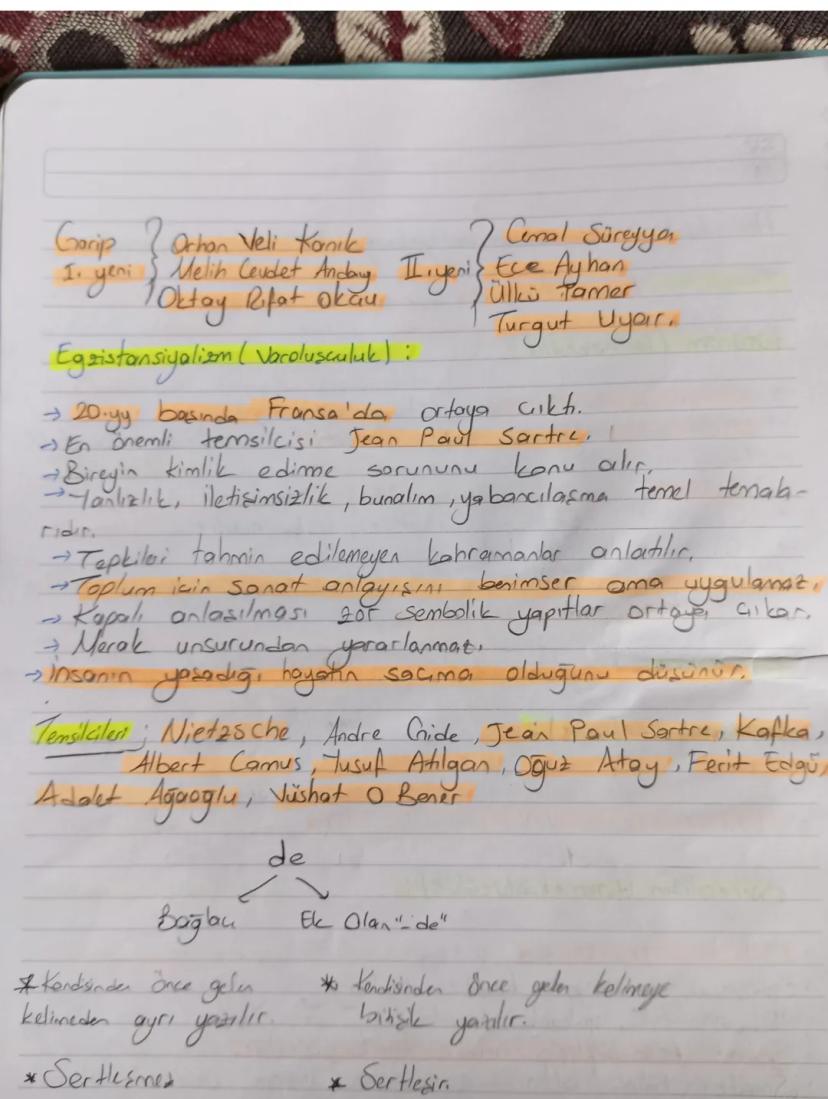 Garip I. yeni } Orhan Veli Kanık
Melih Cevdet Anday
Oktay Rifat Okay
II. yeni } Cemal Süreyya
Ece Ayhan
Ülkü Tamer
Turgut Uyar.
Egzistansiyalizm (Varoluşçuluk) :
→ 20.yy başında Fransa'da ortaya çıktı.
→ En önemli temsilcisi Jean Paul Sartre.
→ Bireyin kimlik edinme sorununu konu alır.
→ Yanlızlık, iletişimsizlik, bunalım, yabancılaşma temel temala-
rıdır.
→ Tepkileri tahmin edilemeyen kahramanlar anlatılır.
→ Toplum için sanat anlayışını benimser ama uygulamaz.
→ Kapalı anlaşılması zor sembolik yapıtlar ortaya çıkar.
→ Merak unsurundan yararlanmaz.
→ İnsanın yaşadığı hayatın saçma olduğunu düşünür.
Temsilcileri ; Nietzsche, Andre Gide, Jean Paul Sartre, Kafka,
Albert Camus, Yusuf Atılgan, Oğuz Atay, Ferit Edgü,
Adalet Ağaoğlu, Vüshat O Bener
de
Bağlaç Ek Olan "-de"
* Kendisinden önce gelen
kelimeden ayrı yazılır.
* Kendisinden önce gelen kelimeye
bitişik yazılır.
* Sertleşmez
* Sertleşir.